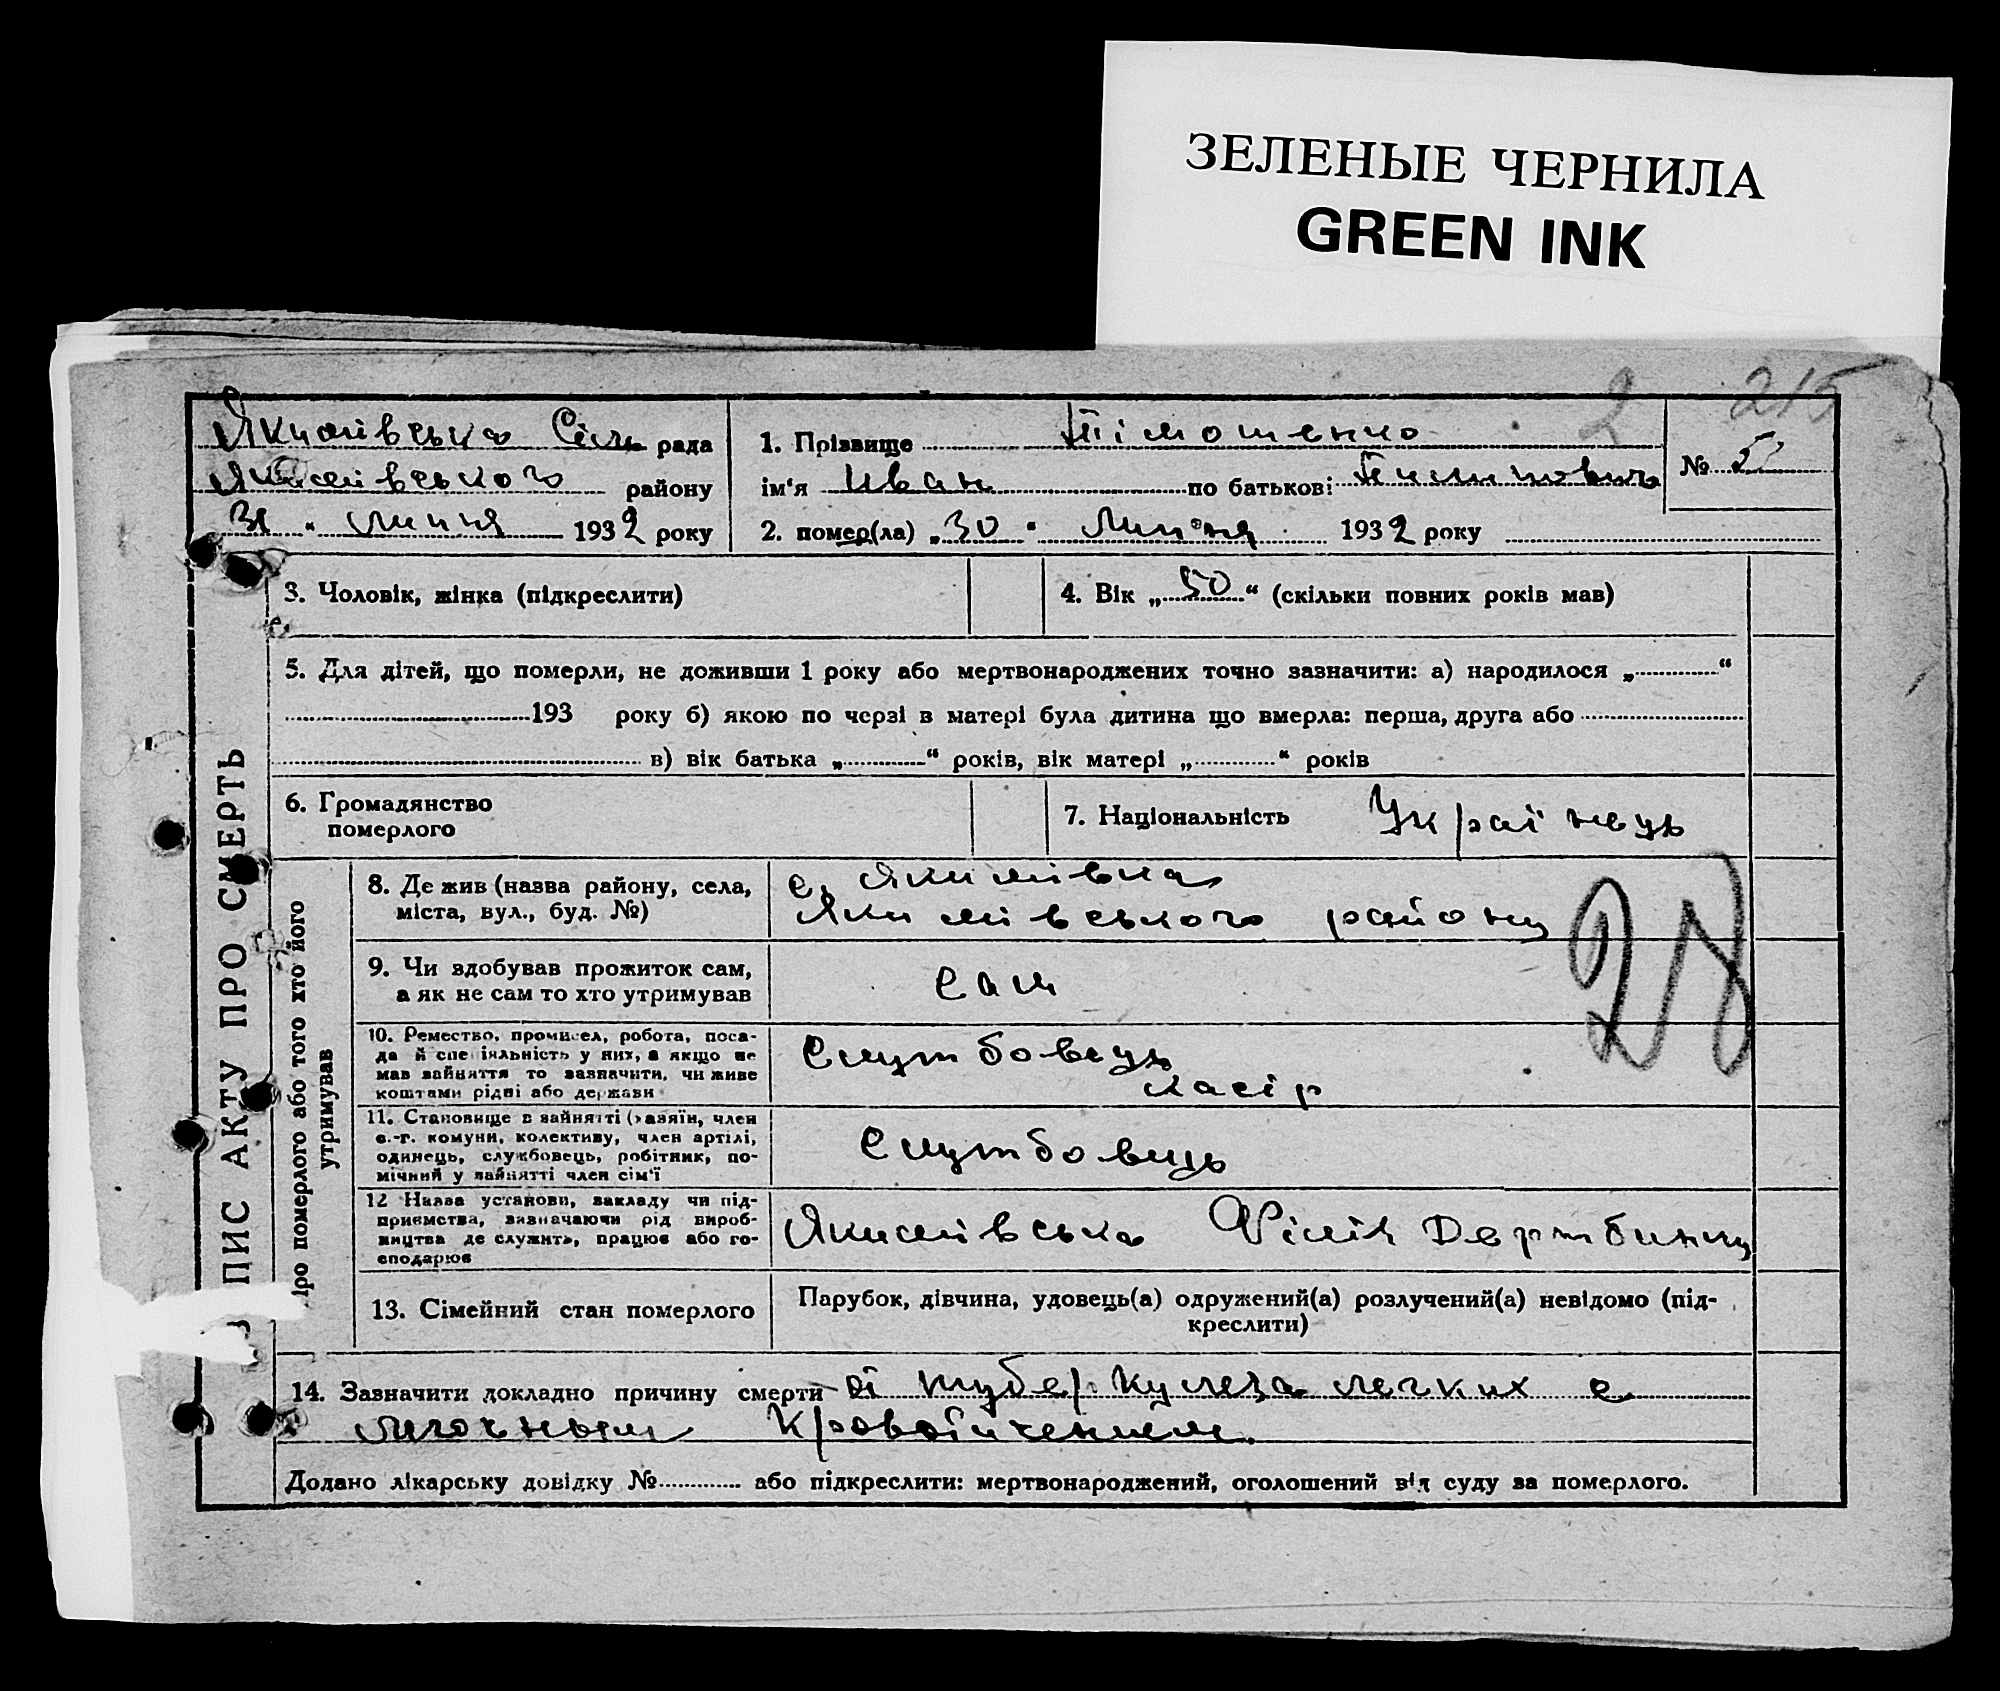 ЗЕЛЕНЫЕ ЧЕРНИЛА
GREEN INK
2 215
Якимівська Сіль рада
Якимівського району
31 " липня 1932 року
1. Прізвище Тімошенко
ім'я Иван по батькові
2. помер(ла) „30 " Липня 1932 року
№ 5
3. Чоловік, жінка (підкреслити)
4. Вік „50" (скільки повних років мав)
5. Для дітей, що померли, не доживши 1 року або мертвонароджених точно зазначити: а) народилося „ "
193 року б) якою по черзі в матері була дитина що вмерла: перша, друга або
в) вік батька „ " років, вік матері „ " років
6. Громадянство
померлого
7. Національність Українець
ЗАПИС АКТУ ПРО СМЕРТЬ
Про померлого або того хто його
утримував
8. Де жив (назва району, села,
міста, вул., буд. №)
с. Якимівка
Якимівського району
28
9. Чи здобував прожиток сам,
а як не сам то хто утримував
сам
10. Ремество, промисел, робота, поса-
да й спеціяльність у них, а якщо не
мав зайняття то зазначити, чи живе
коштами рідні або держави
Службовець
касір
11. Становище в зайнятті (хазяїн, член
с.-г. комуни, колективу, член артілі,
одинець, службовець, робітник, по-
мічний у зайнятті член сім'ї
Службовець
12 Назва установи, закладу чи під-
приємства, зазначаючи рід вироб-
ництва де служить, працює або го-
сподарює
Якимівська Філія Держбанку
13. Сімейний стан померлого
Парубок, дівчина, удовець(а) одружений(а) розлучений(а) невідомо (під-
креслити)
14. Зазначити докладно причину смерти туберкулеза легких с
легочным кровотечением.
Додано лікарську довідку № або підкреслити: мертвонароджений, оголошений від суду за померлого.